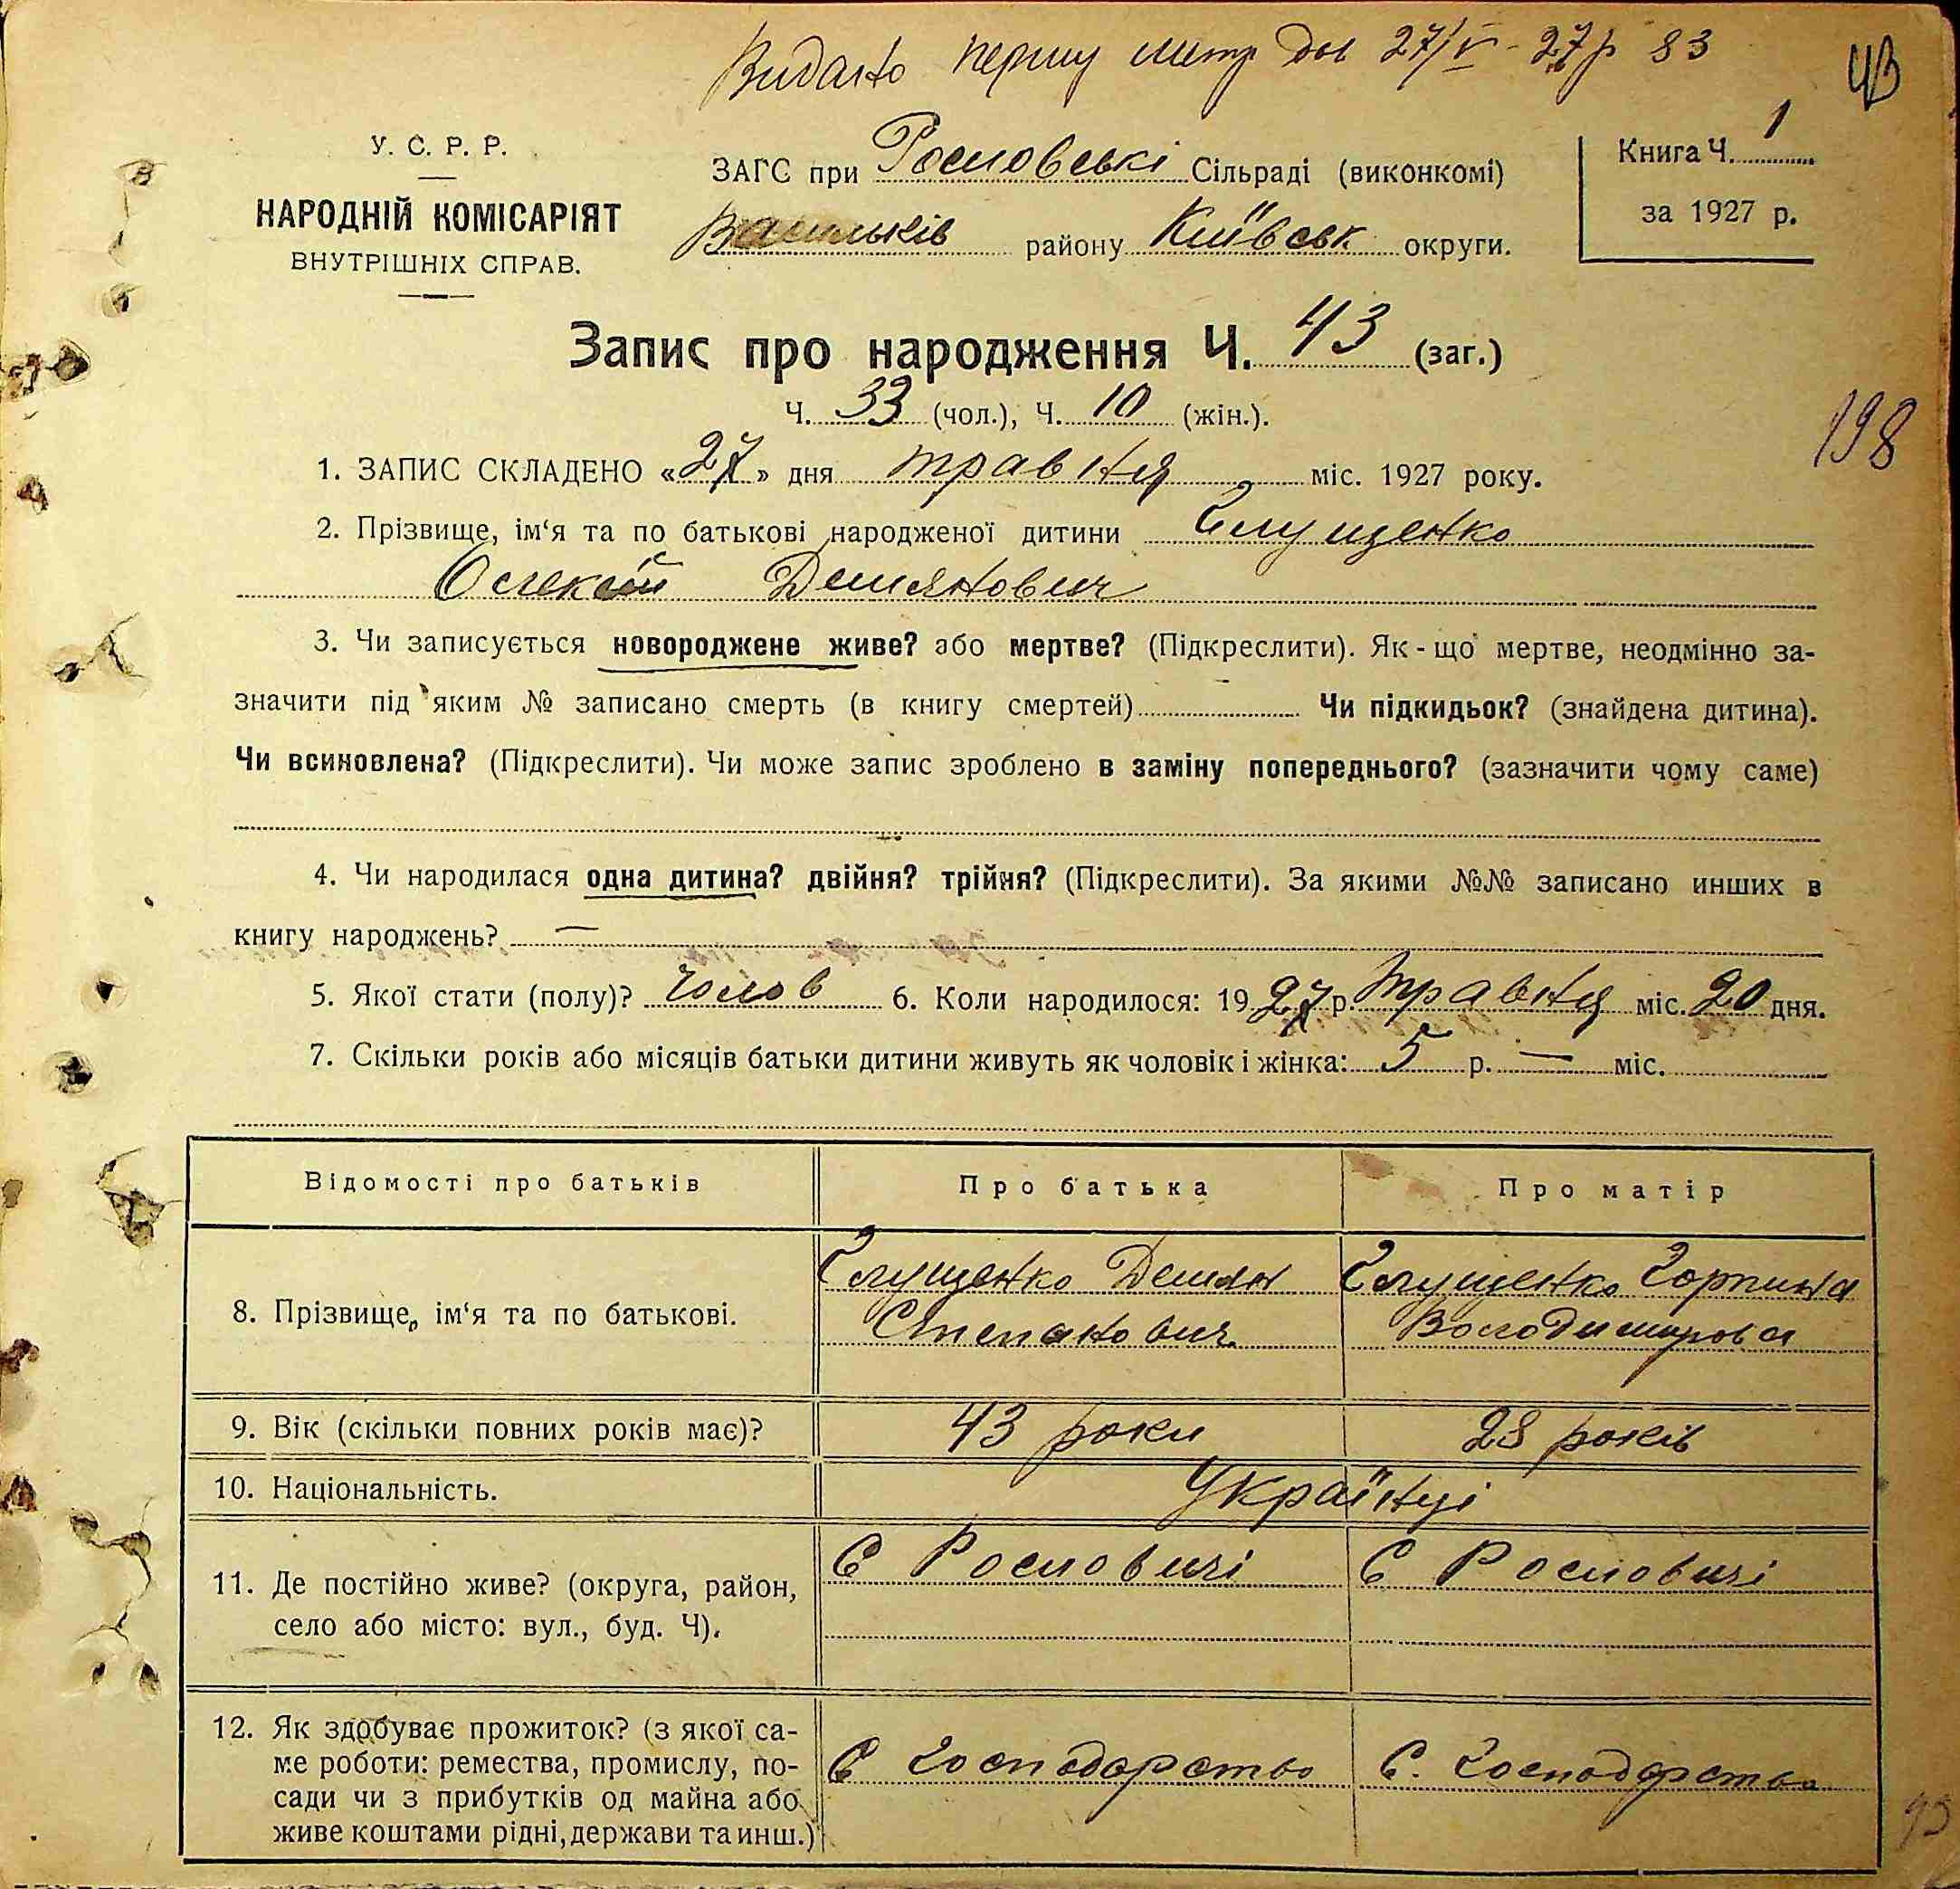 Видано першу метр дол 27/V - 27 р 83
43
У. С. Р. Р.
НАРОДНІЙ КОМІСАРІЯТ
ВНУТРІШНІХ СПРАВ.
ЗАГС при Рословські Сільраді (виконкомі)
Васильків району Київськ округи.
Книга Ч. 1
за 1927 р.
Запис про народження Ч. 43 (заг.)
Ч. 33 (чол.), Ч. 10 (жін.).
198
1. ЗАПИС СКЛАДЕНО «27» дня травня міс. 1927 року.
2. Прізвище, ім‘я та по батькові народженої дитини Глущенко
Олексій Демянович
3. Чи записується новороджене живе? або мертве? (Підкреслити). Як-що мертве, неодмінно за-
значити під яким № записано смерть (в книгу смертей) Чи підкидьок? (знайдена дитина).
Чи всиновлена? (Підкреслити). Чи може запис зроблено в заміну попереднього? (зазначити чому саме)
4. Чи народилася одна дитина? двійня? трійня? (Підкреслити). За якими №№ записано инших в
книгу народжень? —
5. Якої стати (полу)? Чолов 6. Коли народилося: 1927 р. травня міс. 20 дня.
7. Скільки років або місяців батьки дитини живуть як чоловік і жінка: 5 р. — міс.
Відомості про батьків Про батька Про матір
8. Прізвище, ім‘я та по батькові.
Глущенко Демян
Степанович
Глущенко Горпина
Володимирова
9. Вік (скільки повних років має)? 43 роки 28 років
10. Національність. Українці
11. Де постійно живе? (округа, район,
село або місто: вул., буд. Ч).
С Рословичі
С Рословичі
12. Як здобуває прожиток? (з якої са-
ме роботи: ремества, промислу, по-
сади чи з прибутків од майна або
живе коштами рідні, держави та инш.)
С Господарство
С. Господарство